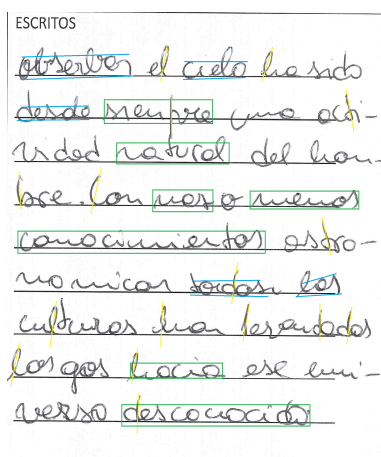 ESCRITOS
observar el cielo ha sido
desde siempre una acti-
vidad natural del hom-
bre. Con mas o menos
conocimientos astro-
nomicos todas las
culturas han levantados
los ojos hacia ese uni-
verso desconocido